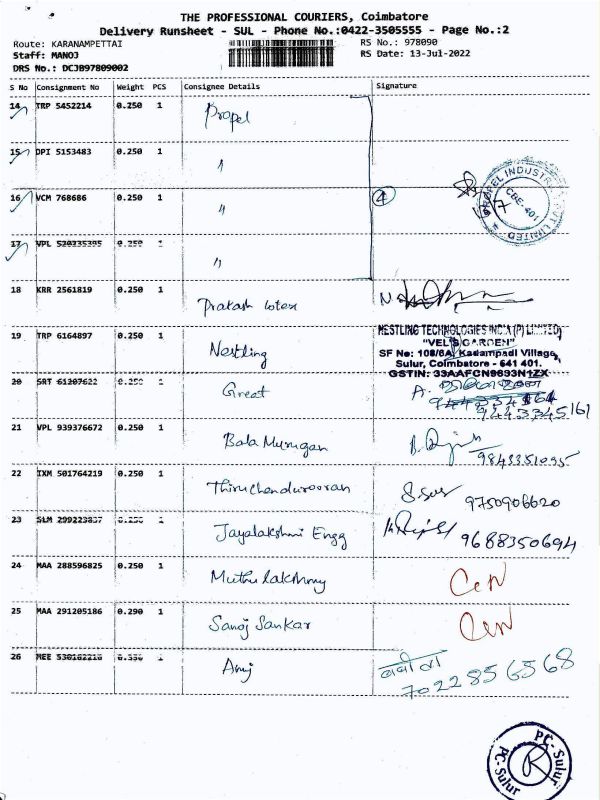 THE PROFESSIONAL COURIERS, Coimbatore
Delivery Runsheet - SUL - Phone No.:0422-3505555 - Page No.:2
Route: KARANAMPETTAI
RS No.: 978090
Staff: MANOJ
RS Date: 13-Jul-2022
DRS No.: DCJB97809002
S No Consignment No Weight PCS Consignee Details Signature
14 TRP 5452214 0.250 1 Propel
15 DPI 5153483 0.250 1 "
16 VCM 768686 0.250 1 " 4
PROPEL INDUSTRIES PRIVATE LIMITED
CBE-401
17 VPL 520335395 0.250 1 "
18 KRR 2561819 0.250 1 Prakash
19 TRP 6164897 0.250 1 Nestling
NESTLING TECHNOLOGIES INDIA (P) LIMITED
"VEL'S GARDEN"
SF No: 108/6A, Kadampadi Village,
Sulur, Coimbatore - 641 401.
GSTIN: 33AAFCN9693N1ZX
20 SRT 61207622 0.250 1 Great A.
9443345161
21 VPL 939376672 0.250 1 Bala Murugan
9843351095
22 IXM 501764219 0.250 1 Thiruchendurooran 9750906620
23 SLM 299223837 0.250 1 Jayalakshmi Engg 9688350694
24 MAA 288596825 0.250 1 Muthulakshmy
25 MAA 291205186 0.290 1 Sanoj Sankar
26 MEE 530162216 0.330 1 Anuj
7022856568
PC-Sulur
PC-Sulur
R